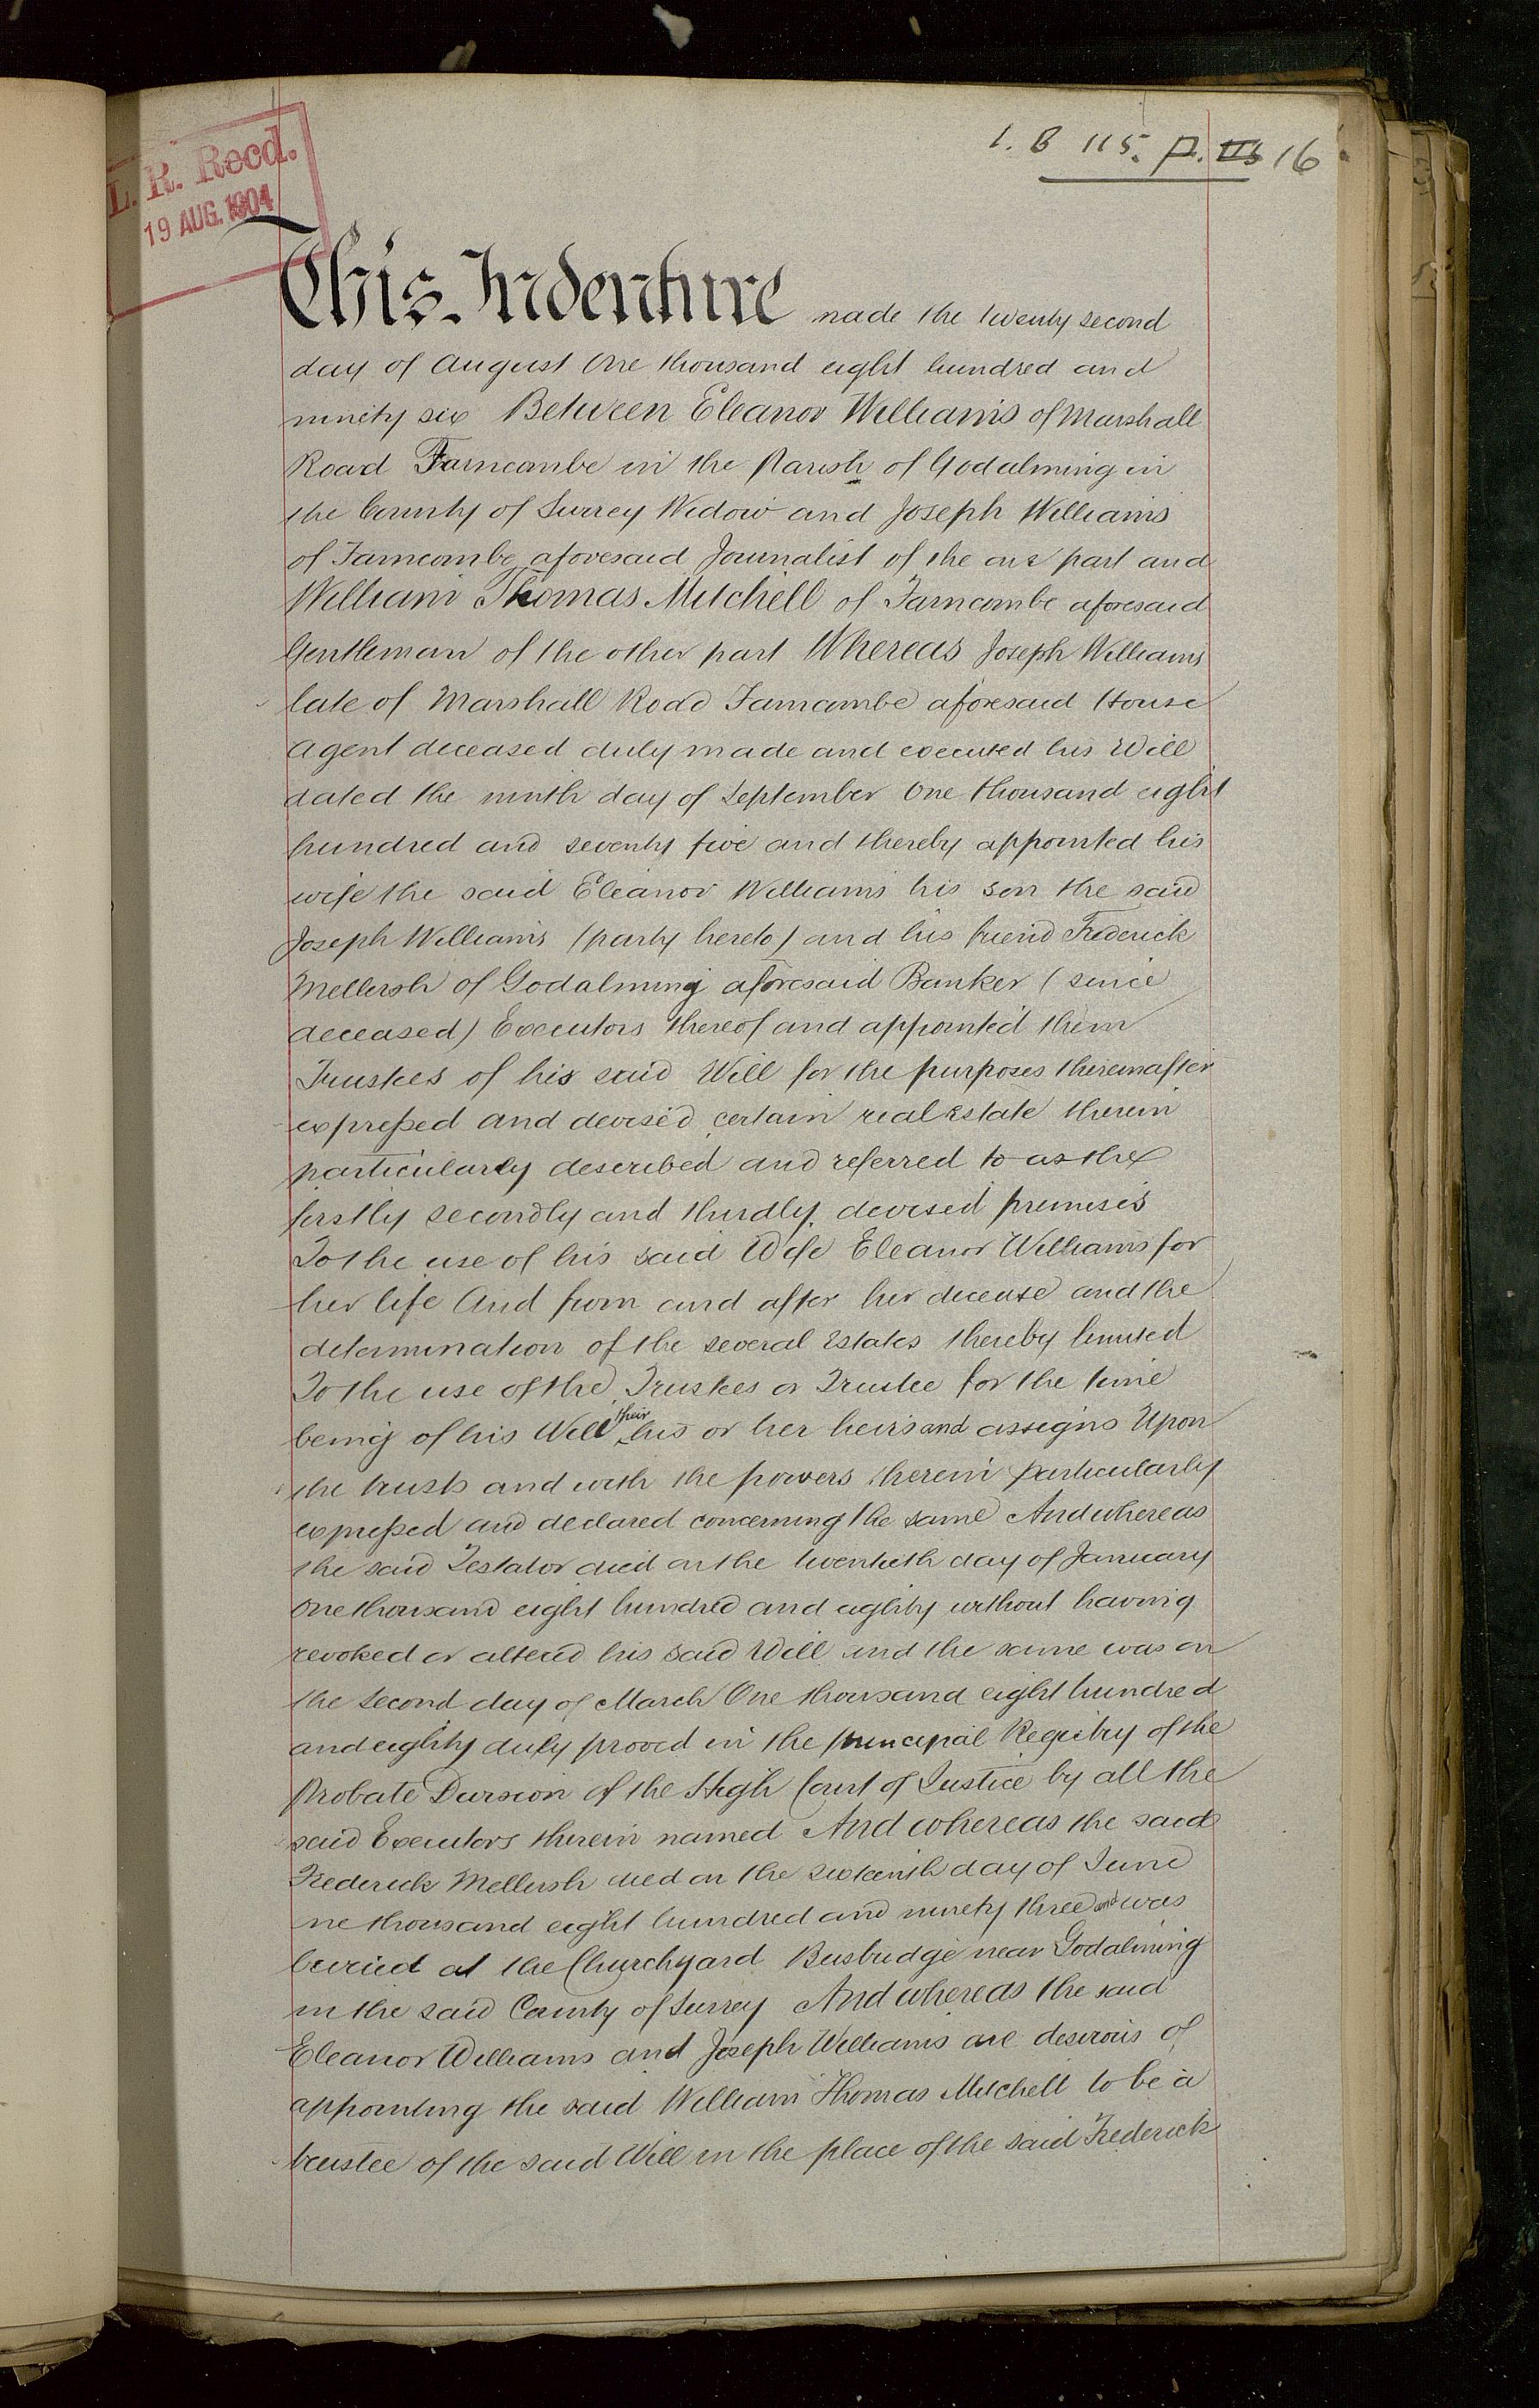 L. R. Recd.
19 AUG. 1904
1. B 115. p. 16
This Indenture made the twenty second
day of August One thousand eight hundred and
ninety six Between Eleanor Williams of Marshall
Road Farncombe in the Parish of Godalming in
the County of Surrey Widow and Joseph Williams
of Farncombe aforesaid Journalist of the one part and
William Thomas Mitchell of Farncombe aforesaid
Gentleman of the other part Whereas Joseph Williams
late of Marshall Road Farncombe aforesaid House
Agent deceased duly made and executed his Will
dated the ninth day of September One thousand eight
hundred and seventy five and thereby appointed his
wife the said Eleanor Williams his son the said
Joseph Williams (party hereto) and his friend Frederick
Mellersh of Godalming aforesaid Banker (since
deceased) Executors thereof and appointed them
Trustees of his said Will for the purposes thereinafter
expressed and devised certain real Estate therein
particularly described and referred to as the
firstly secondly and thirdly devised premises
To the use of his said Wife Eleanor Williams for
her life And from and after her decease and the
determination of the several Estates thereby limited
To the use of the Trustees or Trustee for the time
being of his Will their his or her heirs and assigns Upon
the trusts and with the powers therein particularly
expressed and declared concerning the same And whereas
the said Testator died on the twentieth day of January
One thousand eight hundred and eighty without having
revoked or altered his said Will and the same was on
the second day of March One thousand eight hundred
and eighty duly proved in the principal Registry of the
Probate Division of the High Court of Justice by all the
said Executors therein named And whereas the said
Frederick Mellersh died on the sixteenth day of June
ne thousand eight hundred and ninety three and was
buried at the Churchyard Busbridge near Godalming
in the said County of Surrey And whereas the said
Eleanor Williams and Joseph Williams are desirous of
appointing the said William Thomas Mitchell to be a
trustee of the said Will in the place of the said Frederick